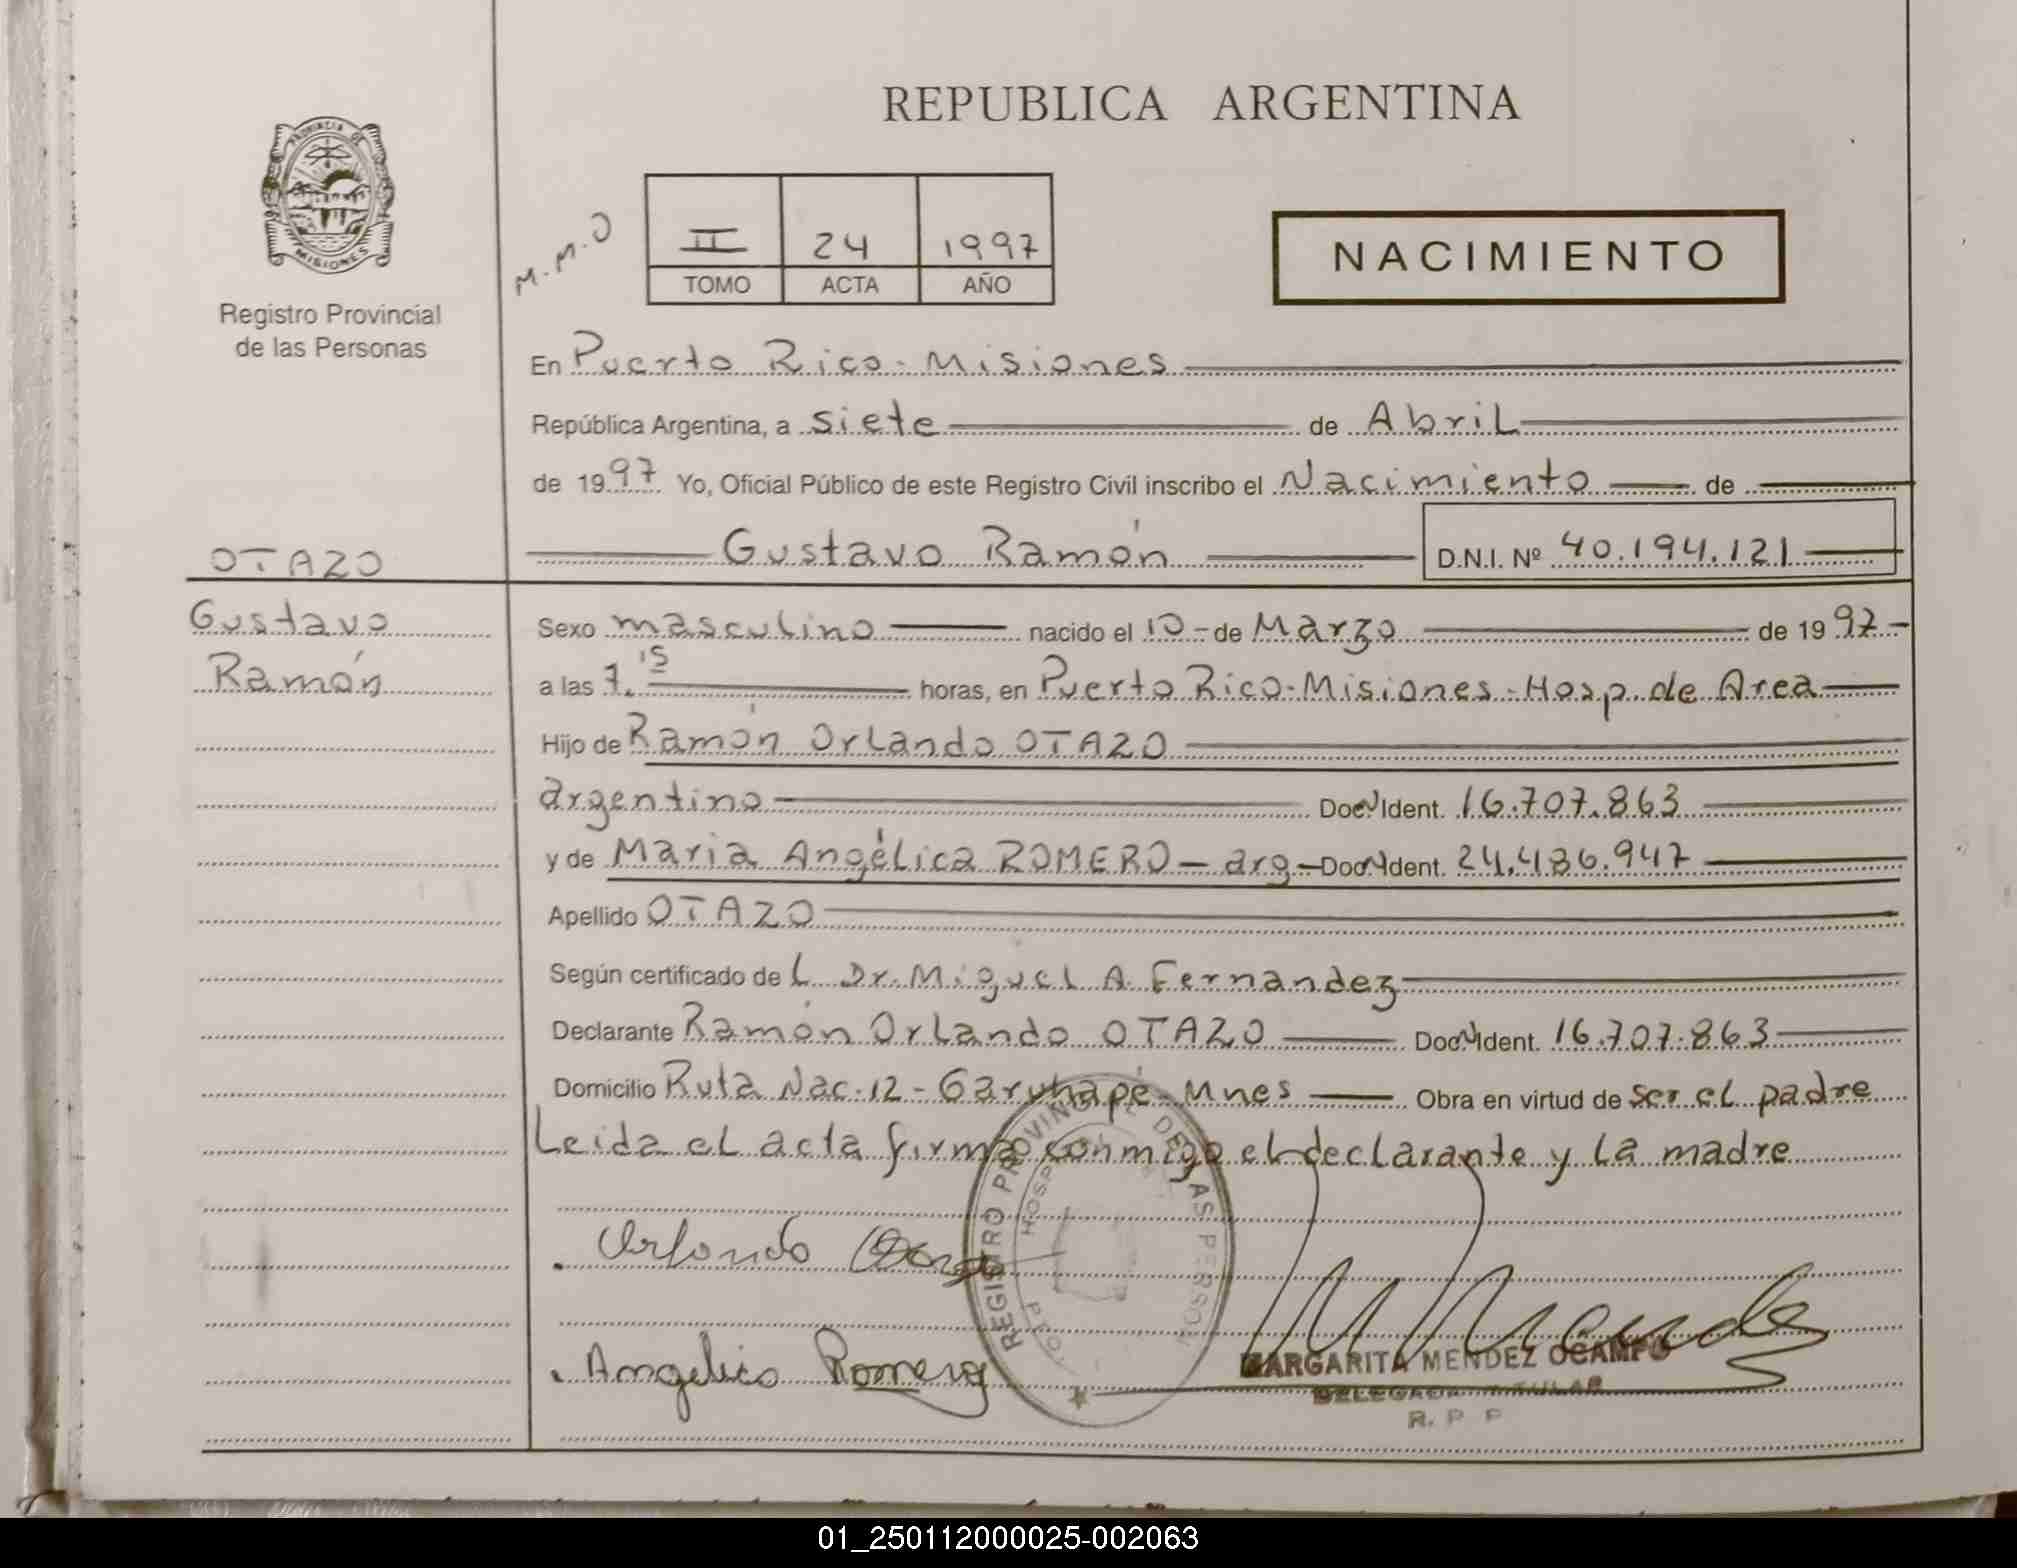 REPUBLICA ARGENTINA
PROVINCIA DE
MISIONES
Registro Provincial
de las Personas
M.M.O
II 24 1997
TOMO ACTA AÑO
NACIMIENTO
En Puerto Rico - Misiones
República Argentina, a siete de Abril
de 1997 Yo, Oficial Público de este Registro Civil inscribo el Nacimiento de
OTAZO
Gustavo Ramón D.N.I. Nº 40.194.121
Gustavo
Ramón
Sexo masculino nacido el 10 - de Marzo de 1997 -
a las 7.15 horas, en Puerto Rico - Misiones - Hosp. de Area
Hijo de Ramón Orlando OTAZO
argentino Doc. Ident. 16.707.863
y de Maria Angélica ROMERO - arg - Doc. Ident. 24.486.947
Apellido OTAZO
Según certificado de L Dr. Miguel A. Fernandez
Declarante Ramón Orlando OTAZO Doc. Ident. 16.707.863
Domicilio Ruta Nac. 12 - Garuhapé - Mnes Obra en virtud de ser el padre
Leida el acta firma conmigo el declarante y la madre
Orlando
REGISTRO PROVINCIAL DE LAS PERSON
HOSP
Angelica Romero
MARGARITA MENDEZ OCAMPO
DELEGADA TITULAR
R. P P
01_250112000025-002063